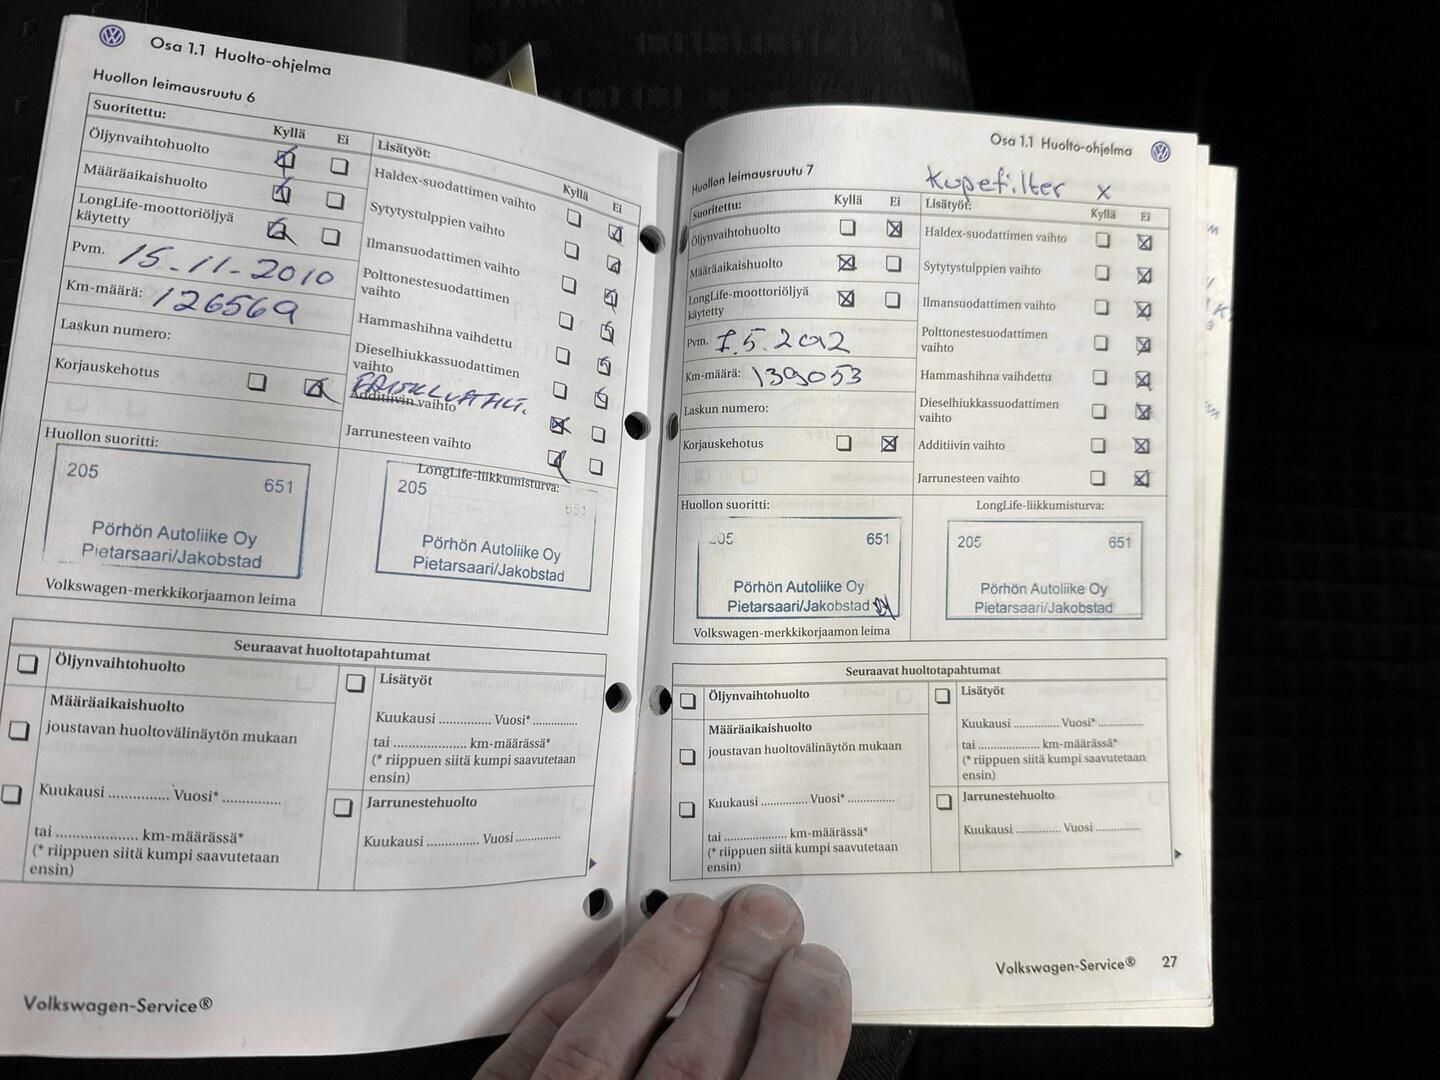 Osa 1.1 Huolto-ohjelma
Huollon leimausruutu 6
Suoritettu:
Kyllä Ei
Öljynvaihtohuolto
Määräaikaishuolto
LongLife-moottoriöljyä
käytetty
Pvm. 15-11-2010
Km-määrä: 126569
Laskun numero:
Korjauskehotus
Lisätyöt:
Kyllä Ei
Haldex-suodattimen vaihto
Sytytystulppien vaihto
Ilmansuodattimen vaihto
Polttonestesuodattimen
vaihto
Hammashihna vaihdettu
Dieselhiukkassuodattimen
vaihto
Additiivin vaihto
Jarrunesteen vaihto
Huollon suoritti:
205 651
Pörhön Autoliike Oy
Pietarsaari/Jakobstad
Volkswagen-merkkikorjaamon leima
LongLife-liikkumisturva:
205 651
Pörhön Autoliike Oy
Pietarsaari/Jakobstad
Seuraavat huoltotapahtumat
Öljynvaihtohuolto
Määräaikaishuolto
joustavan huoltovälinäytön mukaan
Kuukausi ............... Vuosi* ..............
tai .................... km-määrässä*
(* riippuen siitä kumpi saavutetaan
ensin)
Lisätyöt
Kuukausi ............. Vuosi* ...........
tai .................... km-määrässä*
(* riippuen siitä kumpi saavutetaan
ensin)
Jarrunestehuolto
Kuukausi ............. Vuosi .............
Volkswagen-Service®
Osa 1.1 Huolto-ohjelma
Huollon leimausruutu 7
Kupefilter x
Suoritettu:
Kyllä Ei
Öljynvaihtohuolto
Määräaikaishuolto
LongLife-moottoriöljyä
käytetty
Pvm. 7.5.2012
Km-määrä: 139053
Laskun numero:
Korjauskehotus
Lisätyöt:
Kyllä Ei
Haldex-suodattimen vaihto
Sytytystulppien vaihto
Ilmansuodattimen vaihto
Polttonestesuodattimen
vaihto
Hammashihna vaihdettu
Dieselhiukkassuodattimen
vaihto
Additiivin vaihto
Jarrunesteen vaihto
Huollon suoritti:
205 651
Pörhön Autoliike Oy
Pietarsaari/Jakobstad
Volkswagen-merkkikorjaamon leima
LongLife-liikkumisturva:
205 651
Pörhön Autoliike Oy
Pietarsaari/Jakobstad
Seuraavat huoltotapahtumat
Öljynvaihtohuolto
Määräaikaishuolto
joustavan huoltovälinäytön mukaan
Kuukausi ............. Vuosi* .............
tai .................... km-määrässä*
(* riippuen siitä kumpi saavutetaan
ensin)
Lisätyöt
Kuukausi ............. Vuosi* ............
tai .................... km-määrässä*
(* riippuen siitä kumpi saavutetaan
ensin)
Jarrunestehuolto
Kuukausi ............. Vuosi .............
Volkswagen-Service® 27